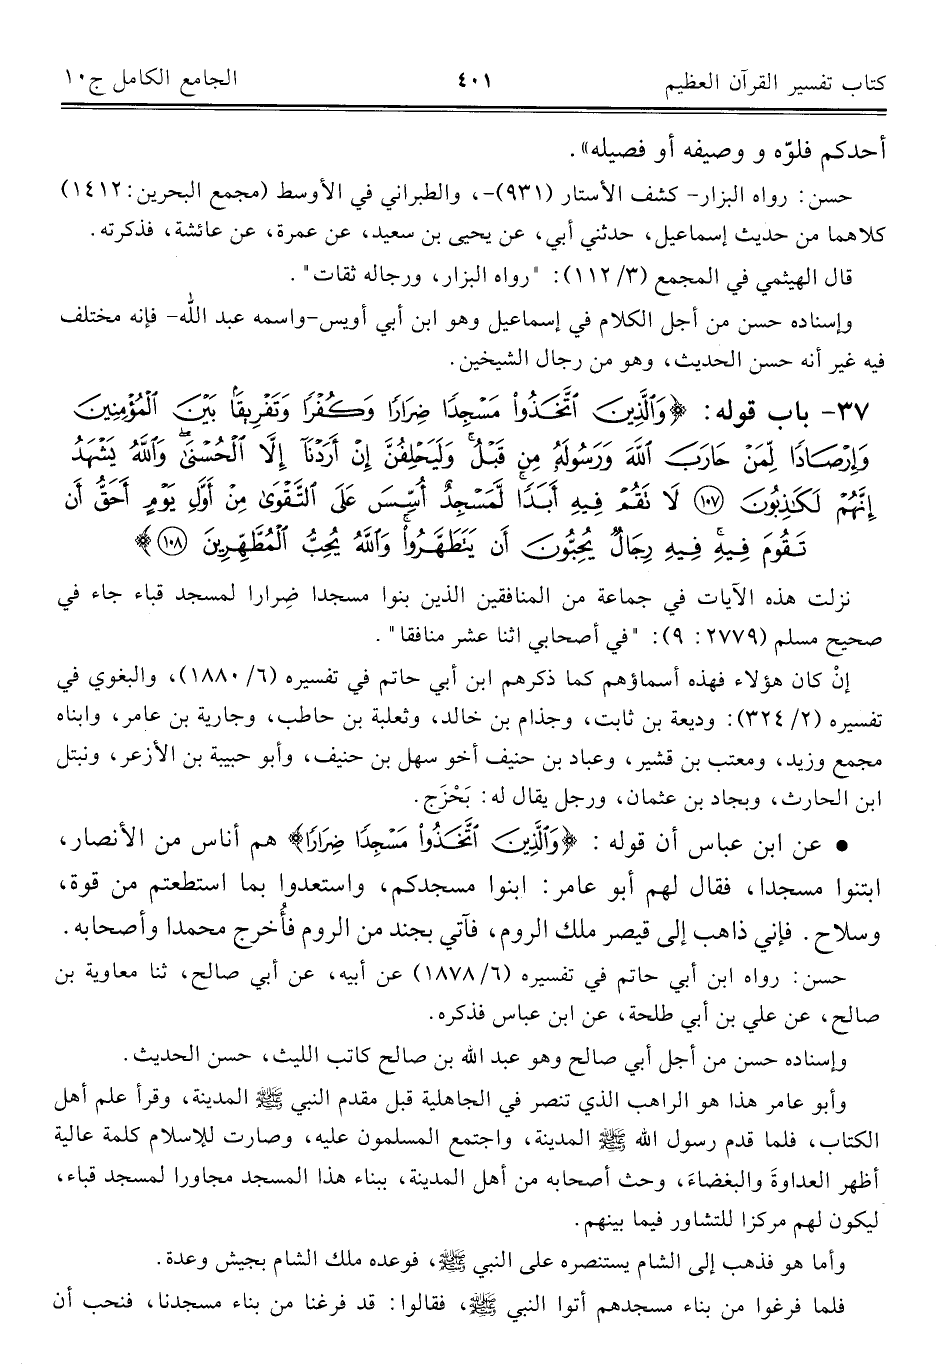 كتاب تفسير القرآن العظيم ٤٠١ الجامع الكامل ج١٠
أحدكم فلوّه و وصيفه أو فصيله».
حسن: رواه البزار- كشف الأستار (٩٣١)-، والطبراني في الأوسط (مجمع البحرين: ١٤١٢)
كلاهما من حديث إسماعيل، حدثني أبي، عن يحيى بن سعيد، عن عمرة، عن عائشة، فذكرته.
قال الهيثمي في المجمع (٣/ ١١٢): "رواه البزار، ورجاله ثقات".
وإسناده حسن من أجل الكلام في إسماعيل وهو ابن أبي أويس-واسمه عبد الله- فإنه مختلف
فيه غير أنه حسن الحديث، وهو من رجال الشيخين.
٣٧- باب قوله: ﴿وَٱلَّذِينَ ٱتَّخَذُوا۟ مَسْجِدًا ضِرَارًا وَكُفْرًا وَتَفْرِيقًۢا بَيْنَ ٱلْمُؤْمِنِينَ
وَإِرْصَادًا لِّمَنْ حَارَبَ ٱللَّهَ وَرَسُولَهُۥ مِن قَبْلُ ۚ وَلَيَحْلِفُنَّ إِنْ أَرَدْنَآ إِلَّا ٱلْحُسْنَىٰ ۖ وَٱللَّهُ يَشْهَدُ
إِنَّهُمْ لَكَـٰذِبُونَ ١٠٧ لَا تَقُمْ فِيهِ أَبَدًا ۚ لَّمَسْجِدٌ أُسِّسَ عَلَى ٱلتَّقْوَىٰ مِنْ أَوَّلِ يَوْمٍ أَحَقُّ أَن
تَقُومَ فِيهِ ۚ فِيهِ رِجَالٌ يُحِبُّونَ أَن يَتَطَهَّرُوا۟ ۚ وَٱللَّهُ يُحِبُّ ٱلْمُطَّهِّرِينَ ١٠٨﴾
نزلت هذه الآيات في جماعة من المنافقين الذين بنوا مسجدا ضِرارا لمسجد قباء جاء في
صحيح مسلم (٢٧٧٩: ٩): "في أصحابي اثنا عشر منافقا".
إنْ كان هؤلاء فهذه أسماؤهم كما ذكرهم ابن أبي حاتم في تفسيره (٦/ ١٨٨٠)، والبغوي في
تفسيره (٢/ ٣٢٤): وديعة بن ثابت، وجذام بن خالد، وثعلبة بن حاطب، وجارية بن عامر، وابناه
مجمع وزيد، ومعتب بن قشير، وعباد بن حنيف أخو سهل بن حنيف، وأبو حبيبة بن الأزعر، ونبتل
ابن الحارث، وبجاد بن عثمان، ورجل يقال له: بَحْزَج.
• عن ابن عباس أن قوله: ﴿وَٱلَّذِينَ ٱتَّخَذُوا۟ مَسْجِدًا ضِرَارًا﴾ هم أناس من الأنصار،
ابتنوا مسجدا، فقال لهم أبو عامر: ابنوا مسجدكم، واستعدوا بما استطعتم من قوة،
وسلاح. فإني ذاهب إلى قيصر ملك الروم، فآتي بجند من الروم فأُخرج محمدا وأصحابه.
حسن: رواه ابن أبي حاتم في تفسيره (٦/ ١٨٧٨) عن أبيه، عن أبي صالح، ثنا معاوية بن
صالح، عن علي بن أبي طلحة، عن ابن عباس فذكره.
وإسناده حسن من أجل أبي صالح وهو عبد الله بن صالح كاتب الليث، حسن الحديث.
وأبو عامر هذا هو الراهب الذي تنصر في الجاهلية قبل مقدم النبي ﷺ المدينة، وقرأ علم أهل
الكتاب، فلما قدم رسول الله ﷺ المدينة، واجتمع المسلمون عليه، وصارت للإسلام كلمة عالية
أظهر العداوةَ والبغضاءَ، وحث أصحابه من أهل المدينة، ببناء هذا المسجد مجاورا لمسجد قباء،
ليكون لهم مركزا للتشاور فيما بينهم.
وأما هو فذهب إلى الشام يستنصره على النبي ﷺ، فوعده ملك الشام بجيش وعدة.
فلما فرغوا من بناء مسجدهم أتوا النبي ﷺ، فقالوا: قد فرغنا من بناء مسجدنا، فنحب أن